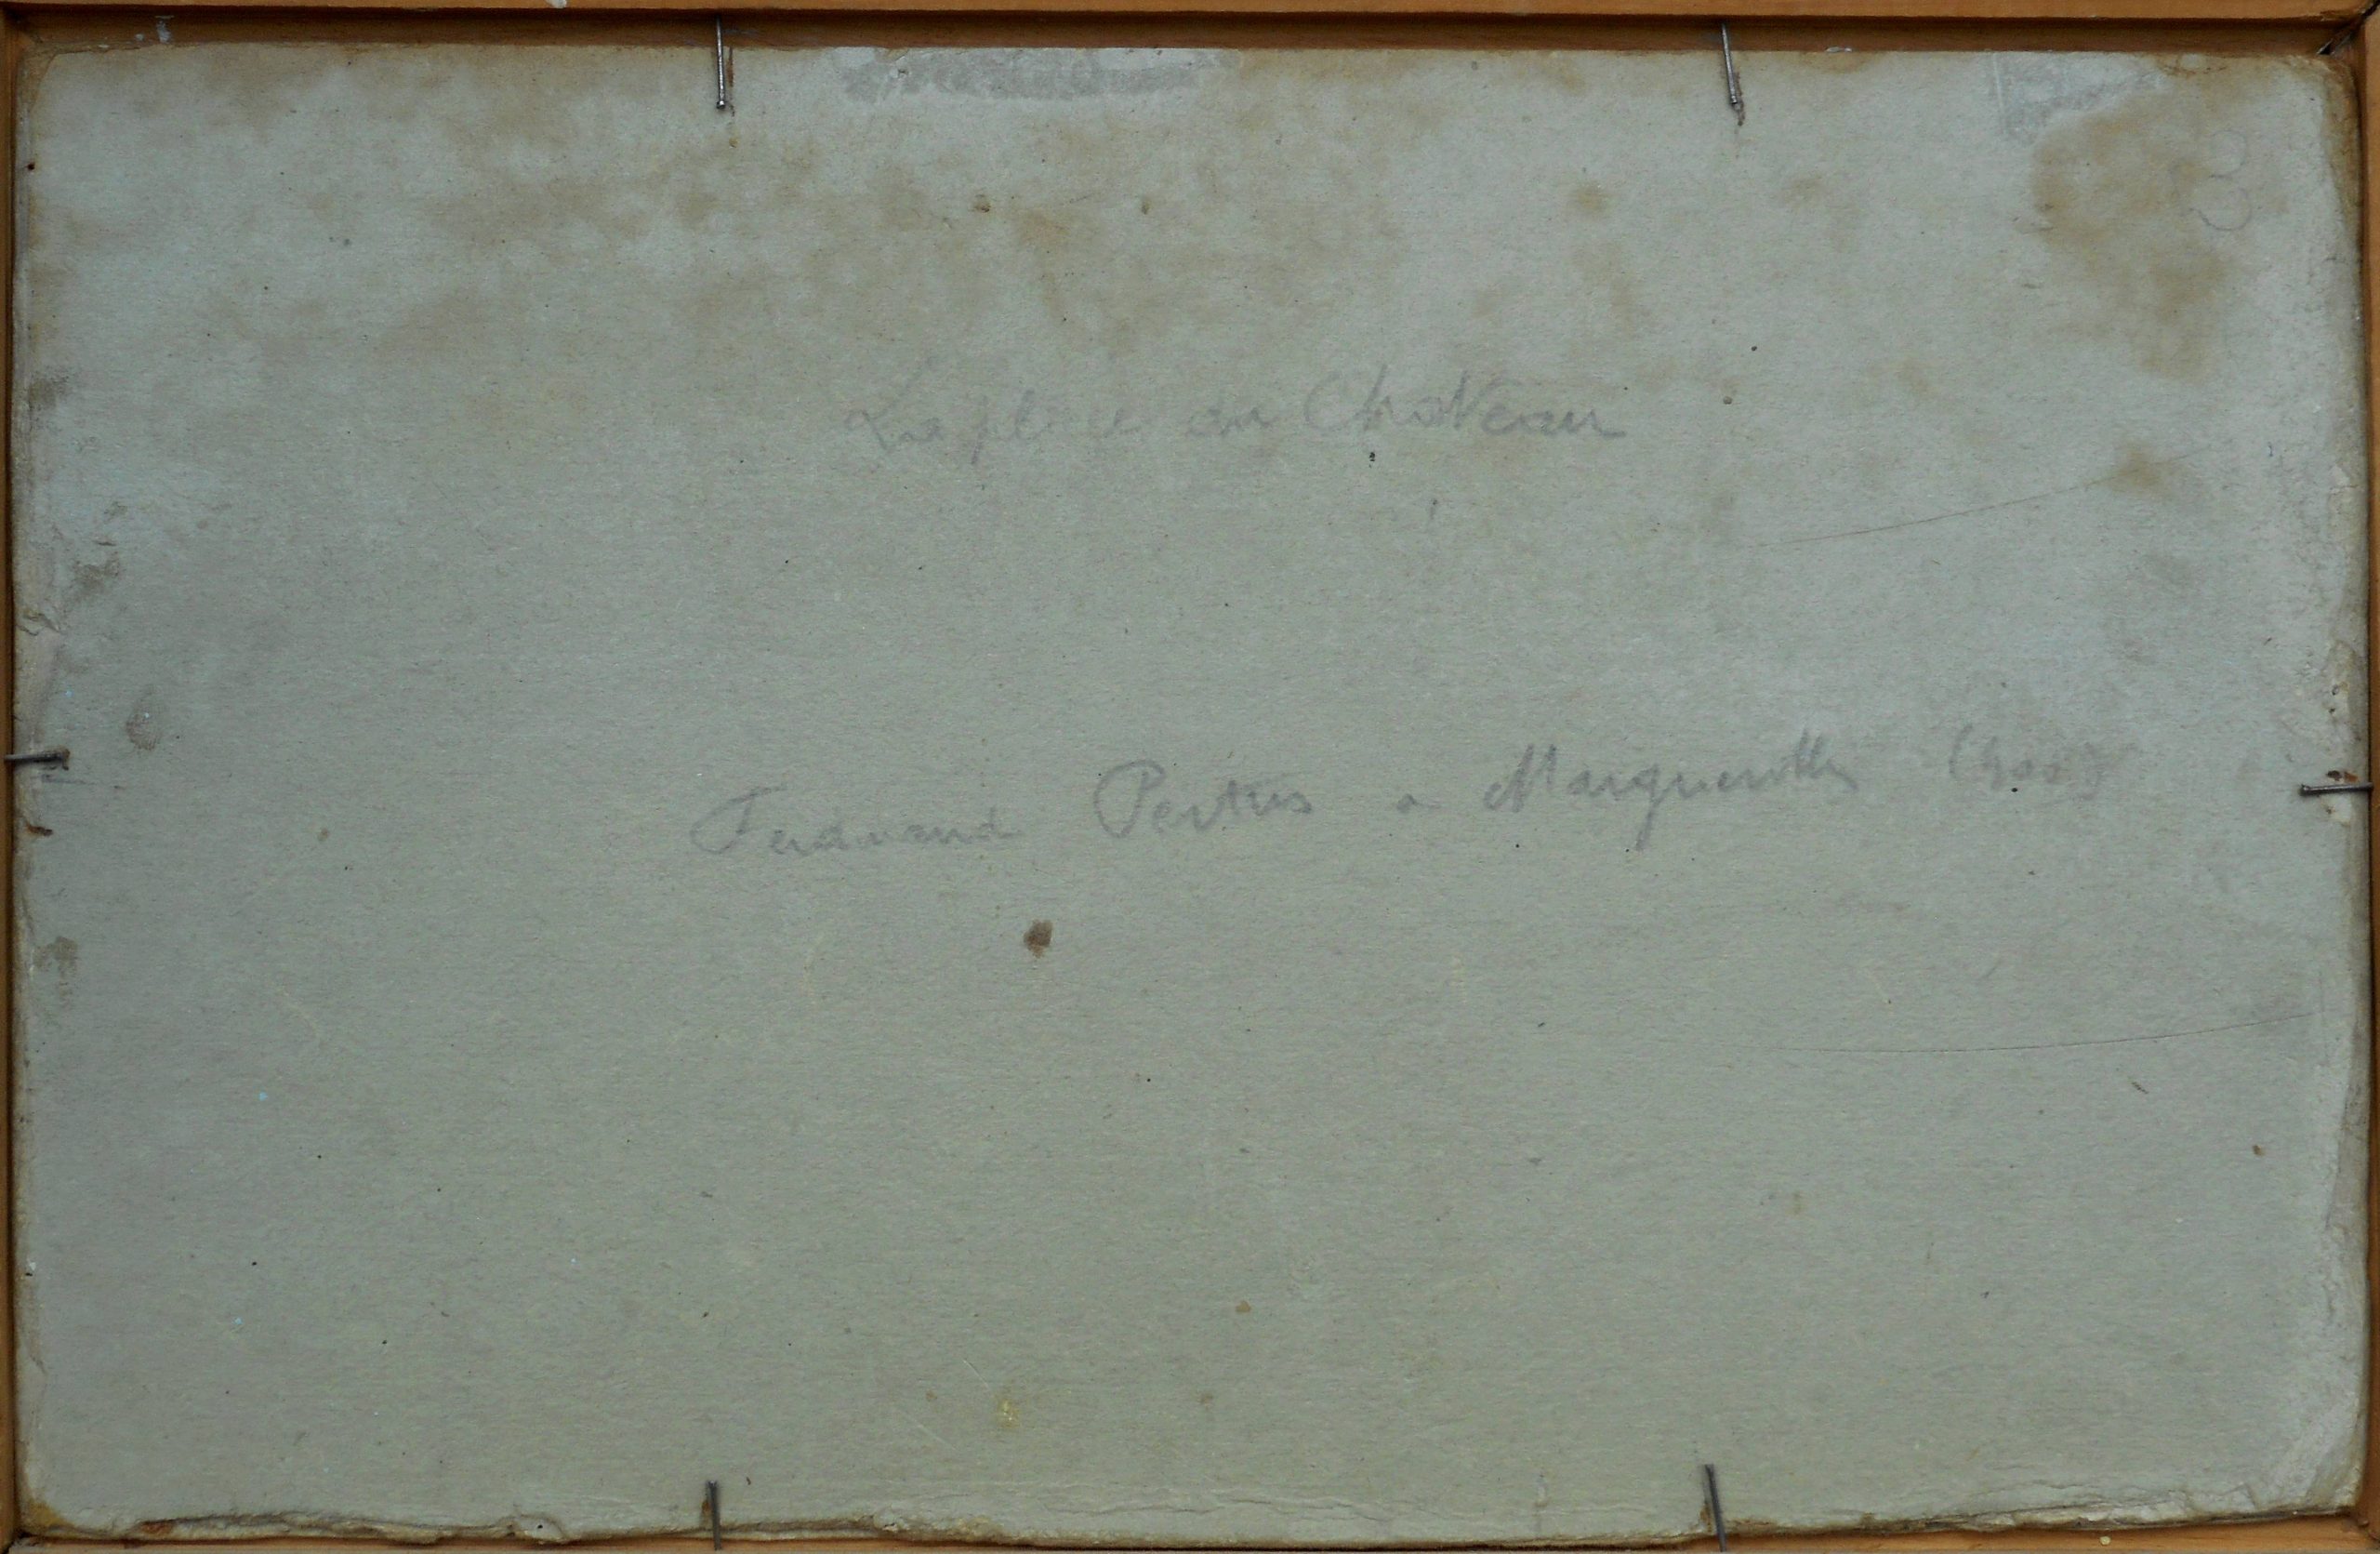 La place du Château
Ferdinand Pertus a Marguerittes (Gard)